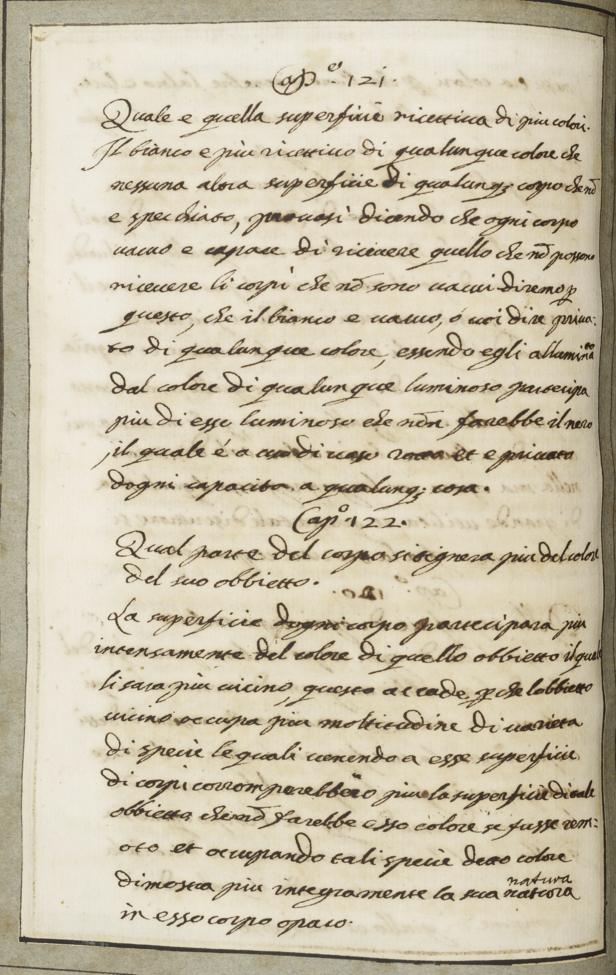 Cap.º 121.
Quale e quella superficie ricettiua di piu colori.
Il bianco e piu ricettiuo di qualunque colore che
nessuna altra superficie di qualunq; corpo che nō
e specchiato, prouasi dicendo che ogni corpo
uacuo e capace di riceuere quello che nō possono
riceuere li corpi che nō sono uacui diremo p
questo, che il bianco e uacuo, ó uoi dire priua-
to di qualunque colore, essendo egli alluminato
dal colore di qualunque luminoso partecipa
piu di esso luminoso che nōn farebbe il nero
il quale é a uso di uaso et e priuato
dogni capacita a qualunq; cosa.
Cap.º 122.
Qual parte del corpo si tignera piu del colore
del suo obbietto.
La superficie dogni corpo partecipara piu
intensamente del colore di quello obbietto il quale
li sara piu uicino, questo accade, p che lobbietto
uicino occupa piu moltitudine di uarieta
di specie le quali uenendo a esse superficie
di corpi corromperebbero piu la superficie di tale
obbietto che nō farebbe esso colore se fusse rem=
oto et occupando tali specie detto colore
dimostra piu integramente la sua natura
in esso corpo opaco.